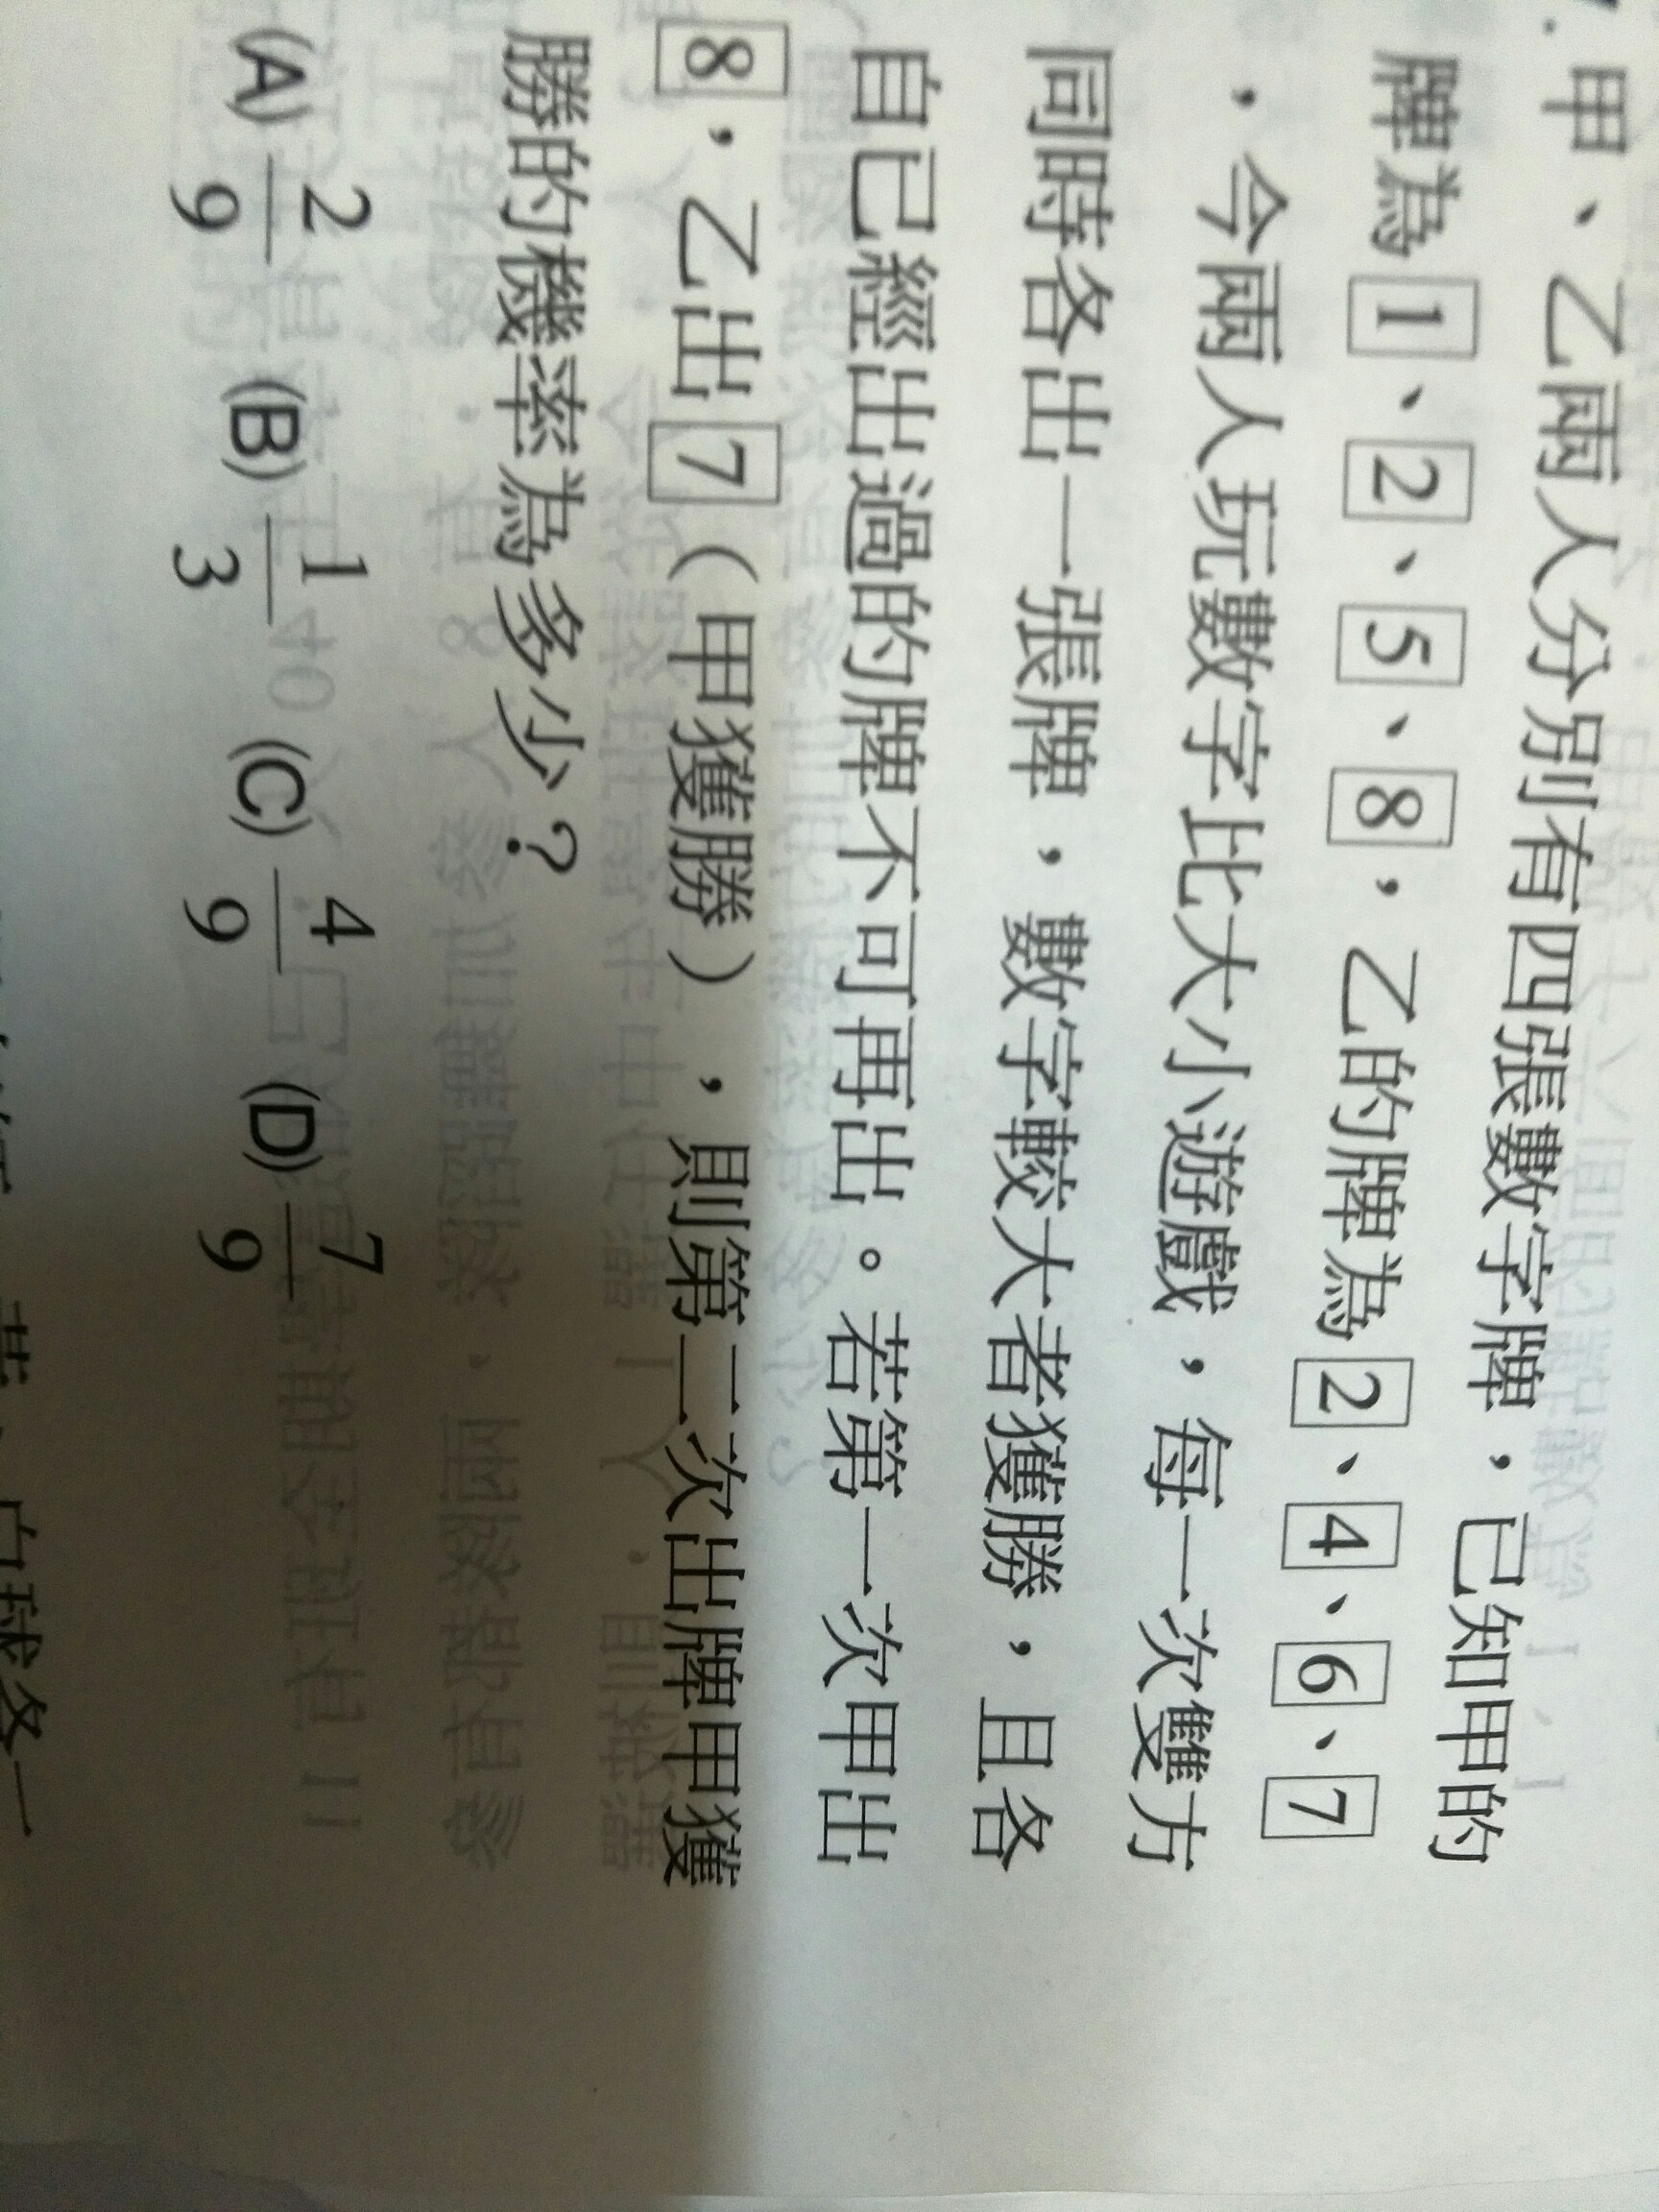 甲、乙兩人分別有四張數字牌，已知甲的
牌為1、2、5、8，乙的牌為2、4、6、7
，今兩人玩數字比大小遊戲，每一次雙方
同時各出一張牌，數字較大者獲勝，且各
自已經出過的牌不可再出。若第一次甲出
8，乙出7（甲獲勝），則第二次出牌甲獲
勝的機率為多少？
(A) 2/9 (B) 1/3 (C) 4/9 (D) 7/9